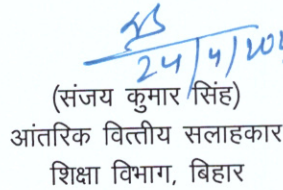 24/4/20
(संजय कुमार सिंह)
आंतरिक वित्तीय सलाहकार
शिक्षा विभाग, बिहार